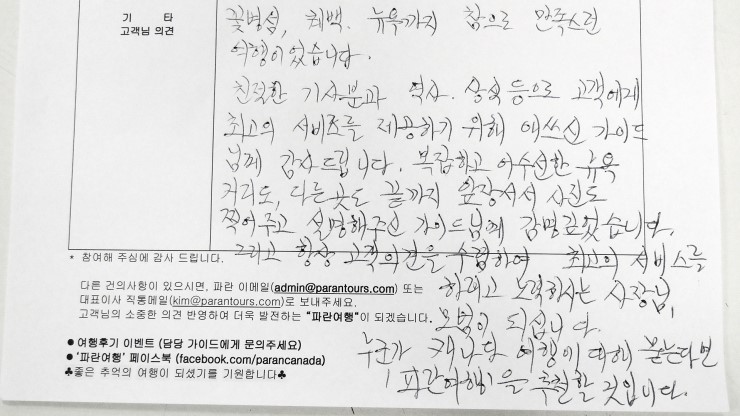 기 타
고객님 의견
꽃병섬, 퀘백. 뉴욕까지 참으로 만족스런
여행이었습니다.
친절한 기사분과 역사. 상식등으로 고객에게
최고의 서비스를 제공하기 위해 애쓰신 가이드
님께 감사드립니다. 복잡하고 어수선한 뉴욕
거리도, 다른곳도 끝까지 앞장서서 사진도
찍어주고 설명해주신 가이드님께 감명깊었습니다.
그리고 항상 고객의견을 수렴하여 최고의 서비스를
하려고 노력하시는 사장님,
모범이 되십니다.
누군가 캐나다 여행에 대해 묻는다면
'파란여행'을 추천할 것입니다.
* 참여해 주심에 감사 드립니다.
다른 건의사항이 있으시면, 파란 이메일(admin@parantours.com) 또는
대표이사 직통메일(kim@parantours.com)로 보내주세요.
고객님의 소중한 의견 반영하여 더욱 발전하는 "파란여행"이 되겠습니다.
● 여행후기 이벤트 (담당 가이드에게 문의주세요)
● '파란여행' 페이스북 (facebook.com/parancanada)
♣좋은 추억의 여행이 되셨기를 기원합니다♣